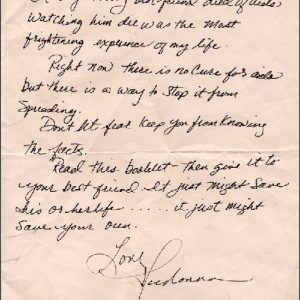 best friend died of aids
Watching him die was the most
frightening experience of my life.
Right now there is no Cure for aids
but there is a way to stop it from
Spreading.
Don't let fear keep you from Knowing
the facts.
Read this booklet then give it to
your best friend. It just might save
his or her life ...... it just might
save your own.
Love